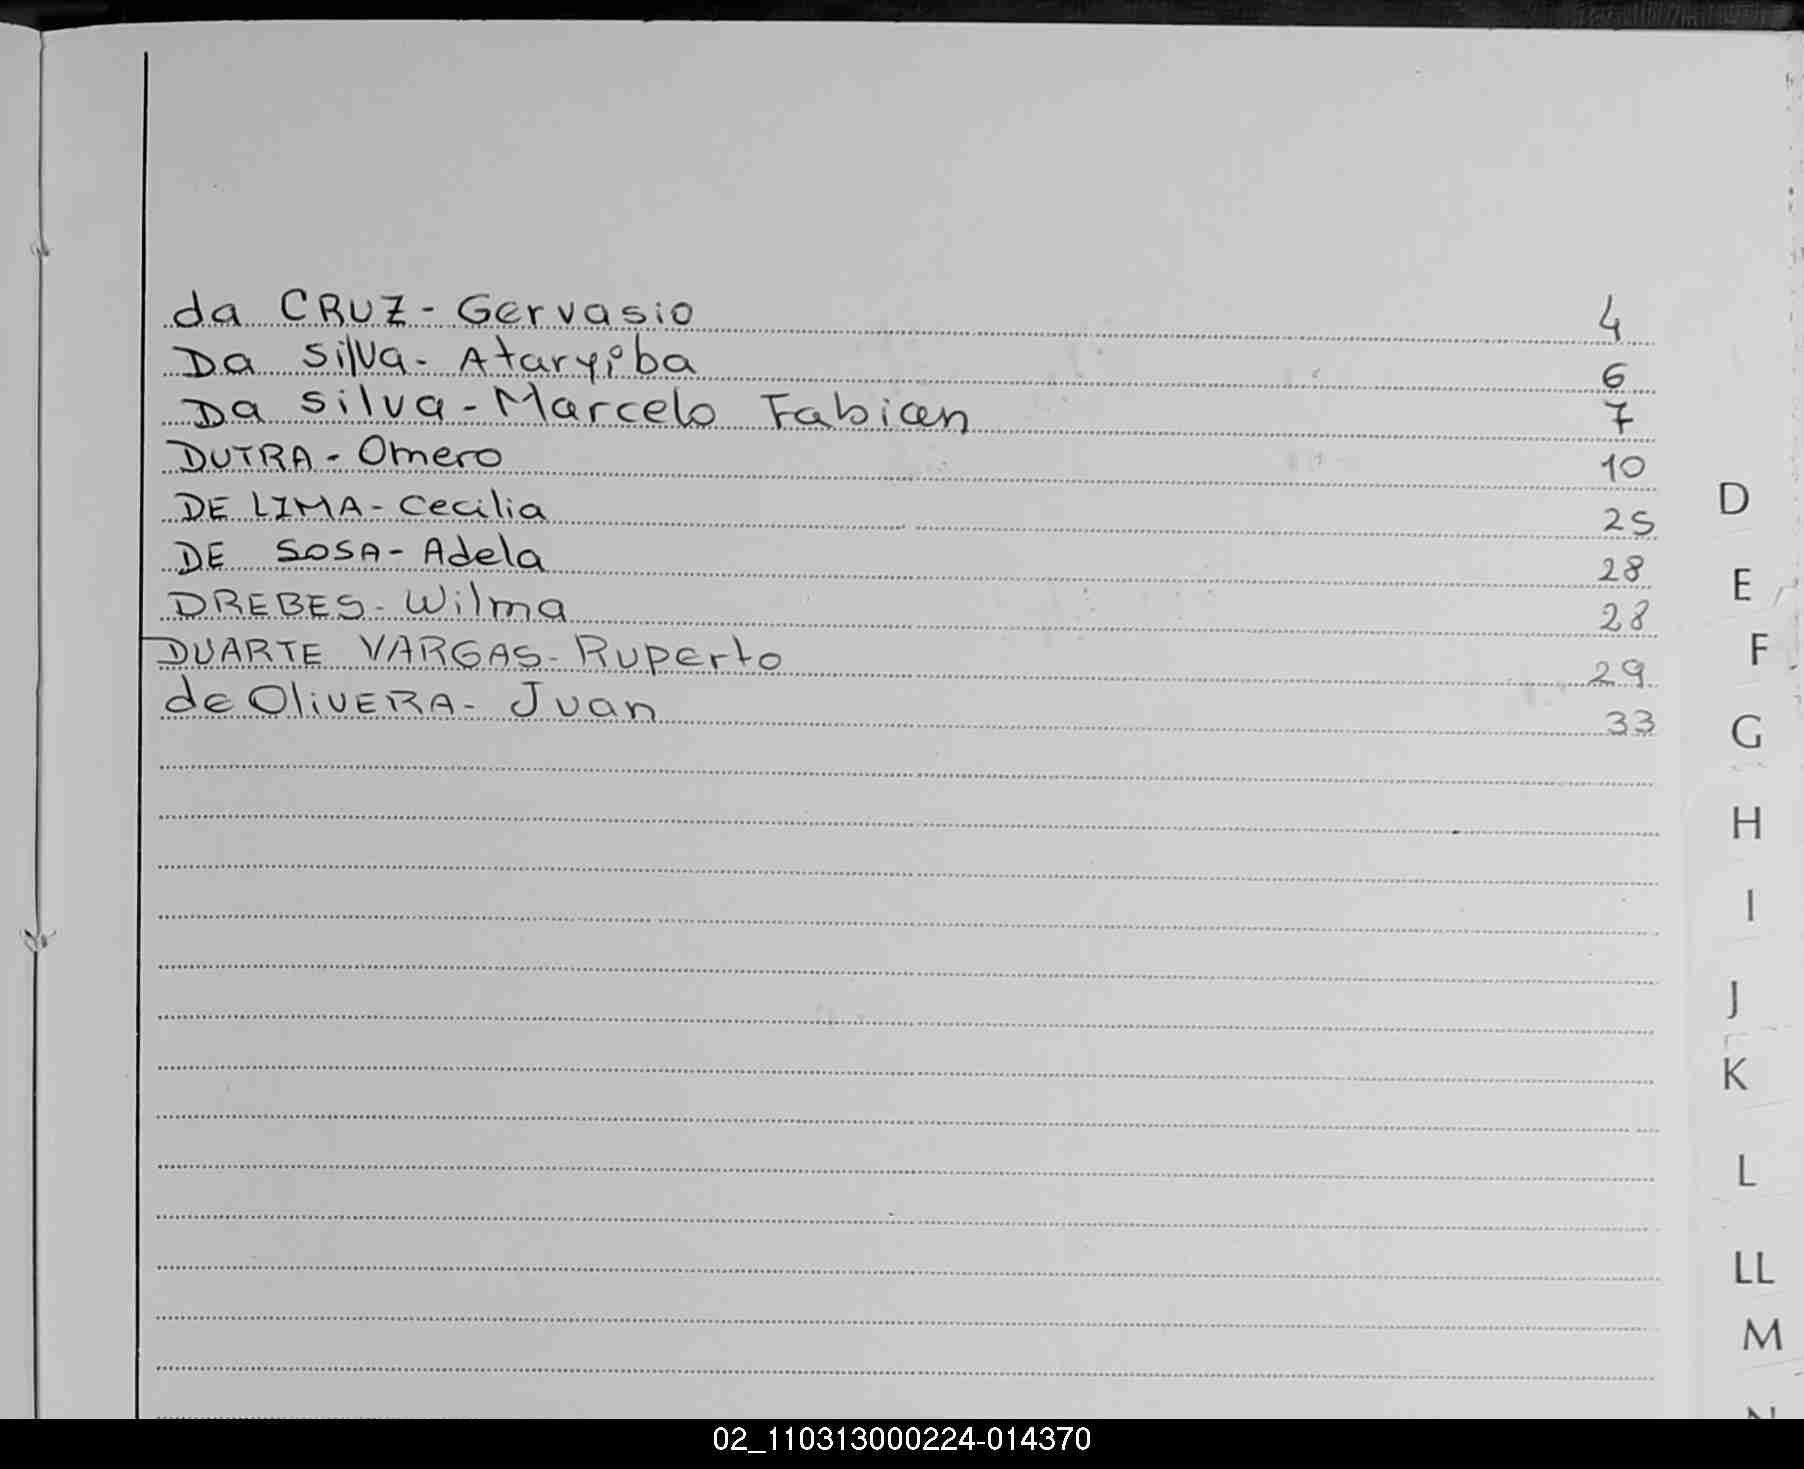 da CRUZ - Gervasio 4
Da Silva - Ataryiba 6
Da Silva - Marcelo Fabian 7
DUTRA - Omero 10
DE LIMA - Cecilia 25
DE SOSA - Adela 28
DREBES - Wilma 28
DUARTE VARGAS - Ruperto 29
de OliVERA - Juan 33
D
E
F
G
H
I
J
K
L
LL
M
N
02_110313000224-014370